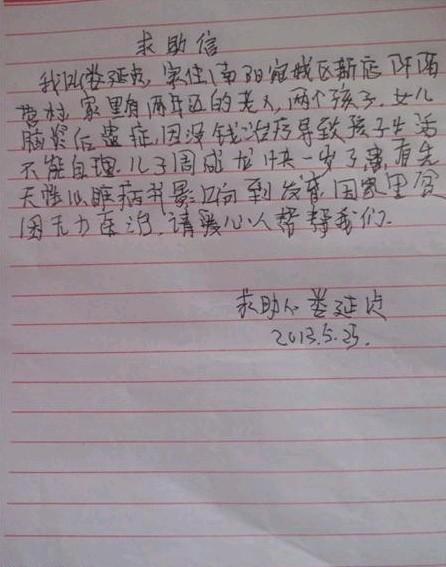 求助信
我叫娄延贞,家住南阳宛城区新店
村,家里有两年迈的老人,两个孩子,女儿
脑炎后遗症,因没钱治疗导致孩子生活
不能自理.儿子周成龙快一岁了患有先
天性心脏病并影响到发育,因家里贫
困无力医治,请爱心人帮帮我们.
求助人 娄延贞
2013.5.25.